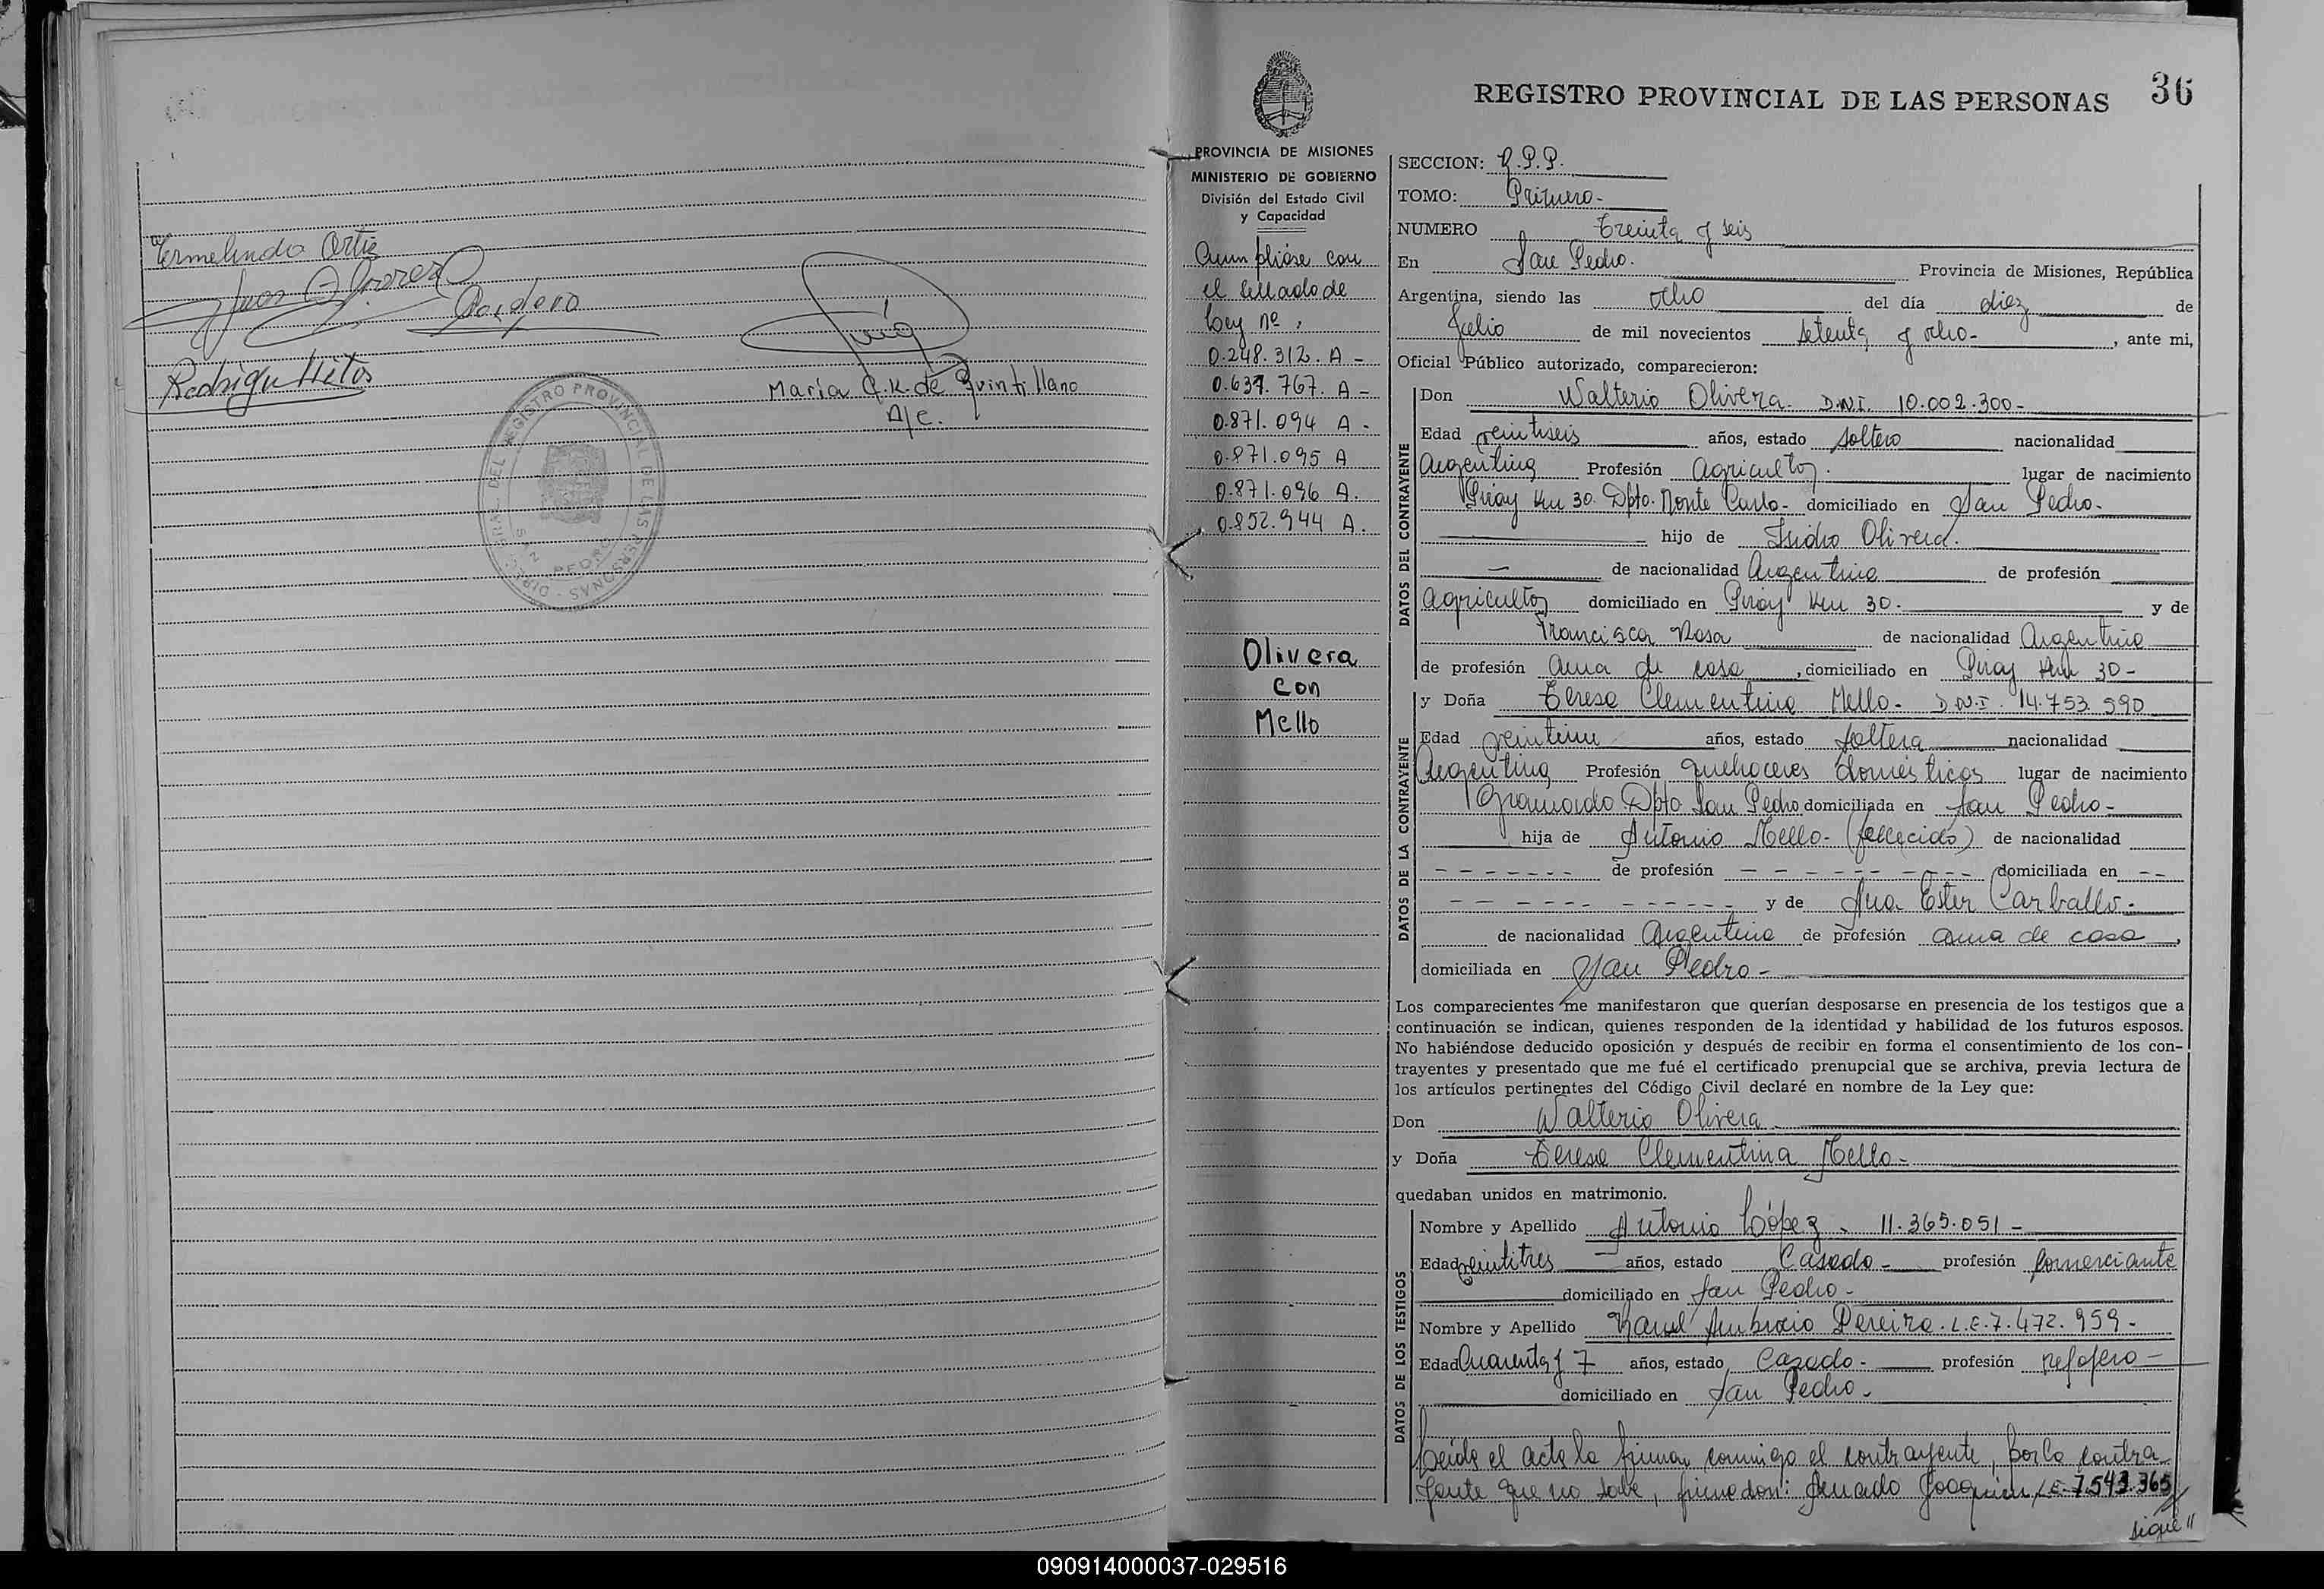 Ermelinda Ortiz
Cordero
María Q.K. de Quintillano
A/C.
DEL REGISTRO PROVINCIAL DE LAS PERSONAS
SAN PEDRO
36
REGISTRO PROVINCIAL DE LAS PERSONAS
PROVINCIA DE MISIONES
MINISTERIO DE GOBIERNO
División del Estado Civil
y Capacidad
Cumpliose con
el sellado de
Ley nº.
0.248.312. A -
0.637.767. A -
0.871.094 A -
0.871.095 A
0.871.096 A.
0.852.944 A.
Olivera
con
Mello
SECCION: R.P.P.
TOMO: Primero-
NUMERO treinta y seis
En San Pedro. Provincia de Misiones, República
Argentina, siendo las ocho del día diez de
Julio de mil novecientos setenta y ocho- , ante mi,
Oficial Público autorizado, comparecieron:
DATOS DEL CONTRAYENTE
Don Walterio Olivera. D.N.I. 10.002.300-
Edad veintiseis años, estado soltero nacionalidad
Argentina Profesión Agricultor. lugar de nacimiento
Piray Km 30. Dpto. Monte Carlo- domiciliado en San Pedro-
hijo de Isidro Olivera.
de nacionalidad Argentina de profesión
agricultor domiciliado en Piray Km 30. y de
Francisca Rosa de nacionalidad Argentina
de profesión ama de casa , domiciliado en Piray Km 30-
DATOS DE LA CONTRAYENTE
y Doña Teresa Clementina Mello- D.N.I. 14.753.590
Edad veintiun años, estado soltera nacionalidad
Argentina Profesión quehaceres domésticos lugar de nacimiento
Gramado Dpto San Pedro domiciliada en San Pedro-
hija de Antonio Mello- (fallecido) de nacionalidad
- - - - - - - de profesión - - - - - - - - - - domiciliada en - -
- - - - - - - - - - - - y de Ana Ester Carballo-
de nacionalidad Argentina de profesión ama de casa ,
domiciliada en San Pedro-
Los comparecientes me manifestaron que querían desposarse en presencia de los testigos que a
continuación se indican, quienes responden de la identidad y habilidad de los futuros esposos.
No habiéndose deducido oposición y después de recibir en forma el consentimiento de los con-
trayentes y presentado que me fué el certificado prenupcial que se archiva, previa lectura de
los artículos pertinentes del Código Civil declaré en nombre de la Ley que:
Don Walterio Olivera
y Doña Teresa Clementina Mello-
quedaban unidos en matrimonio.
DATOS DE LOS TESTIGOS
Nombre y Apellido Antonio López - 11.365.051-
Edad veintitres años, estado Casado- profesión Comerciante
domiciliado en San Pedro-
Nombre y Apellido Ambrocio Pereira. L.E. 7.472.959-
Edad Cuarenta y 7 años, estado Casado- profesión
domiciliado en San Pedro-
Leida el acta la firman conmigo el contrayente, por la contra
yente que no sabe, firma don: Genado Joaquim L.E. 7.543.365
sigue //
090914000037-029516